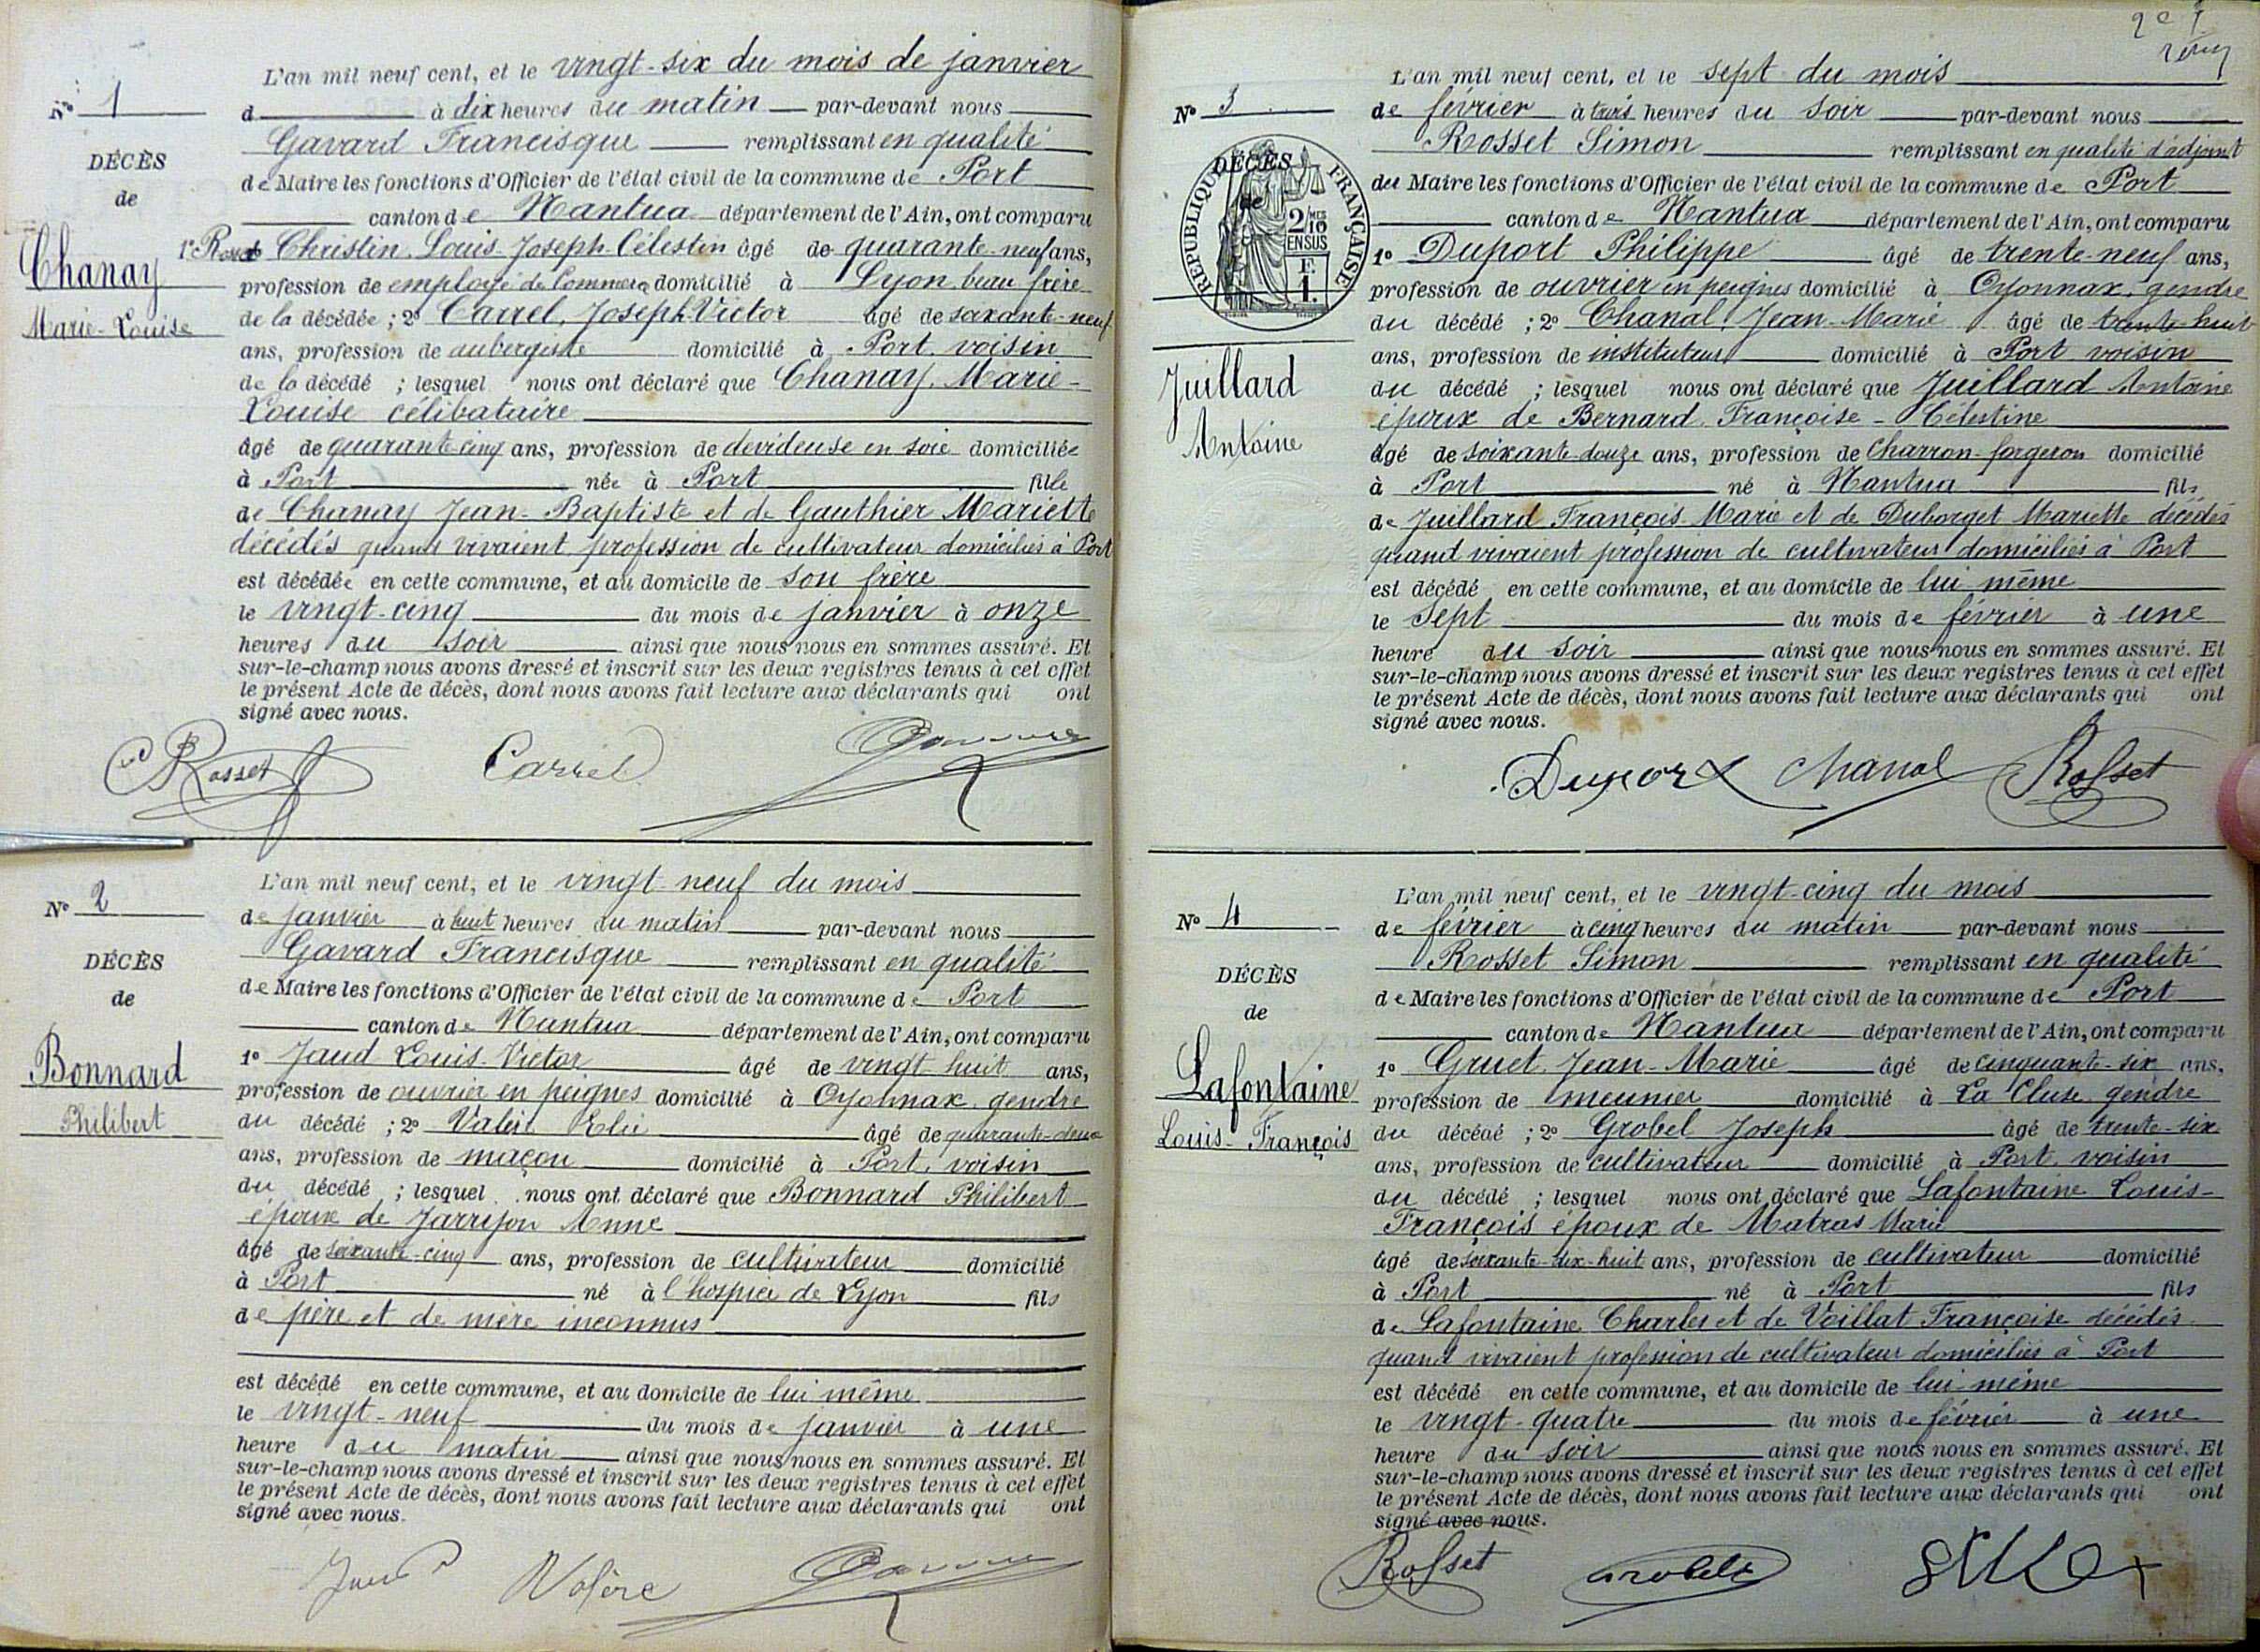 N° 1
DÉCÈS
de
Chanay
Marie-Louise
L'an mil neuf cent, et le vingt-six du mois de janvier
d à dix heures du matin par-devant nous
Gavard Francisque remplissant en qualité
de Maire les fonctions d'Officier de l'état civil de la commune de Port
canton de Nantua département de l'Ain, ont comparu
1° Rosset Christin Louis Joseph Célestin âgé de quarante-neuf ans,
profession de employé de Commerce domicilié à Lyon beau frère
de la décédée ; 2° Carrel, Joseph-Victor âgé de soixante-neuf
ans, profession de aubergiste domicilié à Port, voisin
de la décédé ; lesquel nous ont déclaré que Chanay, Marie-
Louise célibataire
âgé de quarante-cinq ans, profession de devideuse en soie domiciliée
à Port née à Port fille
de Chanay Jean-Baptiste et de Gauthier Mariette
décédés quand vivaient profession de cultivateur domiciliés à Port
est décédée en cette commune, et au domicile de son frère
le vingt-cinq du mois de janvier à onze
heures du soir ainsi que nous nous en sommes assuré. Et
sur-le-champ nous avons dressé et inscrit sur les deux registres tenus à cet effet
le présent Acte de décès, dont nous avons fait lecture aux déclarants qui ont
signé avec nous.
Rosset Carrel
N° 2
DÉCÈS
de
Bonnard
Philibert
L'an mil neuf cent, et le vingt-neuf du mois
de janvier à huit heures du matin par-devant nous
Gavard Francisque remplissant en qualité
de Maire les fonctions d'Officier de l'état civil de la commune de Port
canton de Nantua département de l'Ain, ont comparu
1° Jaud Louis-Victor âgé de vingt huit ans,
profession de ouvrier en peignes domicilié à Oyonnax, gendre
du décédé ; 2° Valère Elie âgé de quarante-deux
ans, profession de maçon domicilié à Port, voisin
du décédé ; lesquel nous ont déclaré que Bonnard Philibert
époux de Jarrijon Anne
âgé de soixante-cinq ans, profession de cultivateur domicilié
à Port né à l'hospice de Lyon fils
de père et de mère inconnus
est décédé en cette commune, et au domicile de lui même
le vingt-neuf du mois de janvier à une
heure du matin ainsi que nous nous en sommes assuré. Et
sur-le-champ nous avons dressé et inscrit sur les deux registres tenus à cet effet
le présent Acte de décès, dont nous avons fait lecture aux déclarants qui ont
signé avec nous.
Jaud Valère
N° 3
DÉCÈS
de
RÉPUBLIQUE FRANÇAISE
2/10 MES
EN SUS
F.
1.
Juillard
Antoine
L'an mil neuf cent, et le sept du mois
de février à trois heures du soir par-devant nous
Rosset Simon remplissant en qualité d'adjoint
du Maire les fonctions d'Officier de l'état civil de la commune de Port
canton de Nantua département de l'Ain, ont comparu
1° Duport Philippe âgé de trente-neuf ans,
profession de ouvrier en peignes domicilié à Oyonnax, gendre
du décédé ; 2° Chanal, Jean-Marie âgé de trente-huit
ans, profession de instituteur domicilié à Port voisin
du décédé ; lesquel nous ont déclaré que Juillard Antoine
époux de Bernard Françoise-Célestine
âgé de soixante-douze ans, profession de Charron-forgeron domicilié
à Port né à Nantua fils
de Juillard François-Marie et de Duborget Mariette décédés
quand vivaient profession de cultivateur domiciliés à Port
est décédé en cette commune, et au domicile de lui même
le sept du mois de février à une
heure du soir ainsi que nous nous en sommes assuré. Et
sur-le-champ nous avons dressé et inscrit sur les deux registres tenus à cet effet
le présent Acte de décès, dont nous avons fait lecture aux déclarants qui ont
signé avec nous.
Duport Chanal Rosset
N° 4
DÉCÈS
de
Lafontaine
Louis-François
L'an mil neuf cent, et le vingt-cinq du mois
de février à cinq heures du matin par-devant nous
Rosset Simon remplissant en qualité
de Maire les fonctions d'Officier de l'état civil de la commune de Port
canton de Nantua département de l'Ain, ont comparu
1° Gruet, Jean-Marie âgé de cinquante-six ans,
profession de meunier domicilié à La Cluse gendre
du décédé ; 2° Grobel Joseph âgé de trente-six
ans, profession de cultivateur domicilié à Port, voisin
du décédé ; lesquel nous ont déclaré que Lafontaine Louis-
François époux de Matras Marie
âgé de soixante-dix-huit ans, profession de cultivateur domicilié
à Port né à Port fils
de Lafontaine Charles et de Voillat Françoise décédés
quand vivaient profession de cultivateur domiciliés à Port
est décédé en cette commune, et au domicile de lui-même
le vingt-quatre du mois de février à une
heure du soir ainsi que nous nous en sommes assuré. Et
sur-le-champ nous avons dressé et inscrit sur les deux registres tenus à cet effet
le présent Acte de décès, dont nous avons fait lecture aux déclarants qui ont
signé avec nous.
Rosset